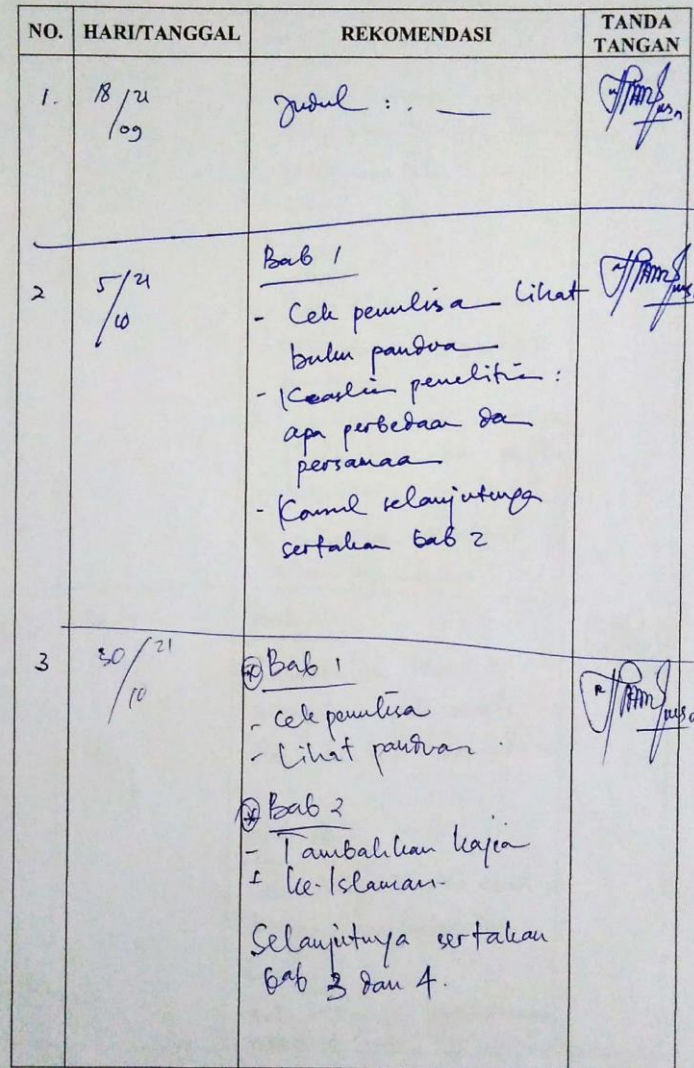 NO. HARI/TANGGAL REKOMENDASI TANDA TANGAN
1. 18/21 Judul : . —
/09
2 5/21 Bab 1
/10 - Cek penulisa Lihat
buku pandua
- Keaslia penelitia :
apa perbedaan da
persamaa
- Konsul selanjutnya
sertakan bab 2
3 30/21 Bab 1
/10 - cek penulisa
- Lihat panduan.
Bab 2
- Tambahkan kajia
ke-Islaman.
Selanjutnya sertakan
bab 3 dan 4.